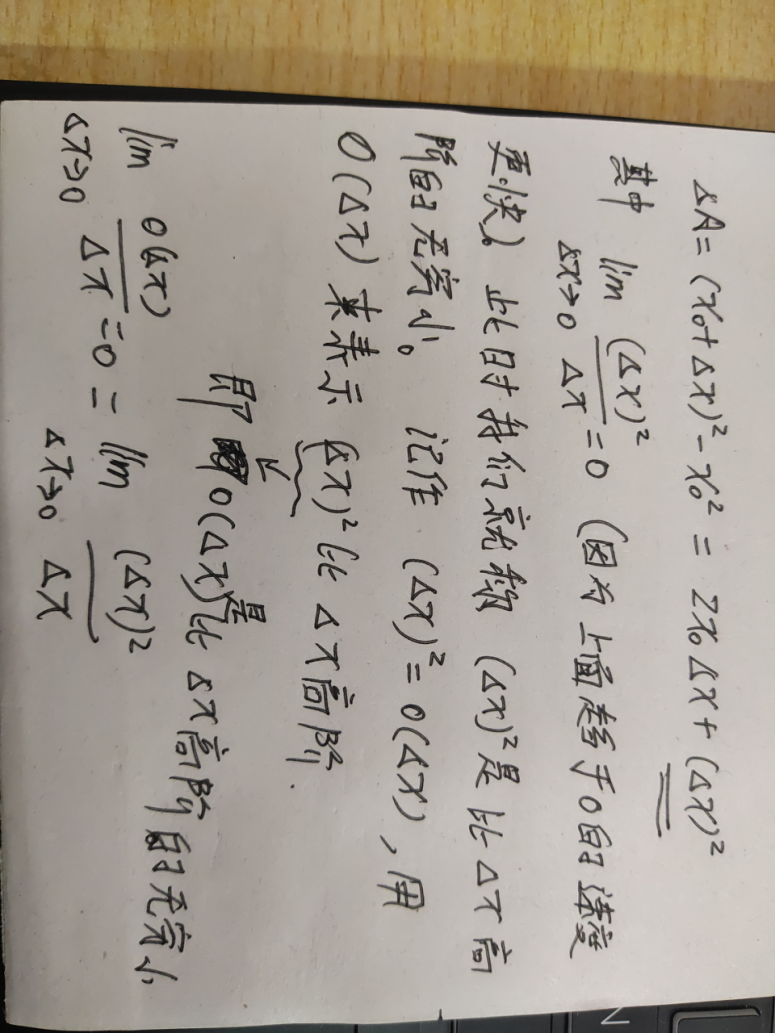 ΔA = (x₀+Δx)² - x₀² = 2x₀Δx + (Δx)²
其中 lim Δx→0 (Δx)²/Δx = 0 (因为上面趋于0的速度
更快) 此时我们就称 (Δx)²是比Δx高
阶的无穷小。 记作 (Δx)² = o(Δx), 用
o(Δx) 来表示 (Δx)²比Δx高阶.
即 o(Δx)是比Δx高阶的无穷小
lim Δx→0 o(Δx)/Δx = 0 = lim Δx→0 (Δx)²/Δx
N